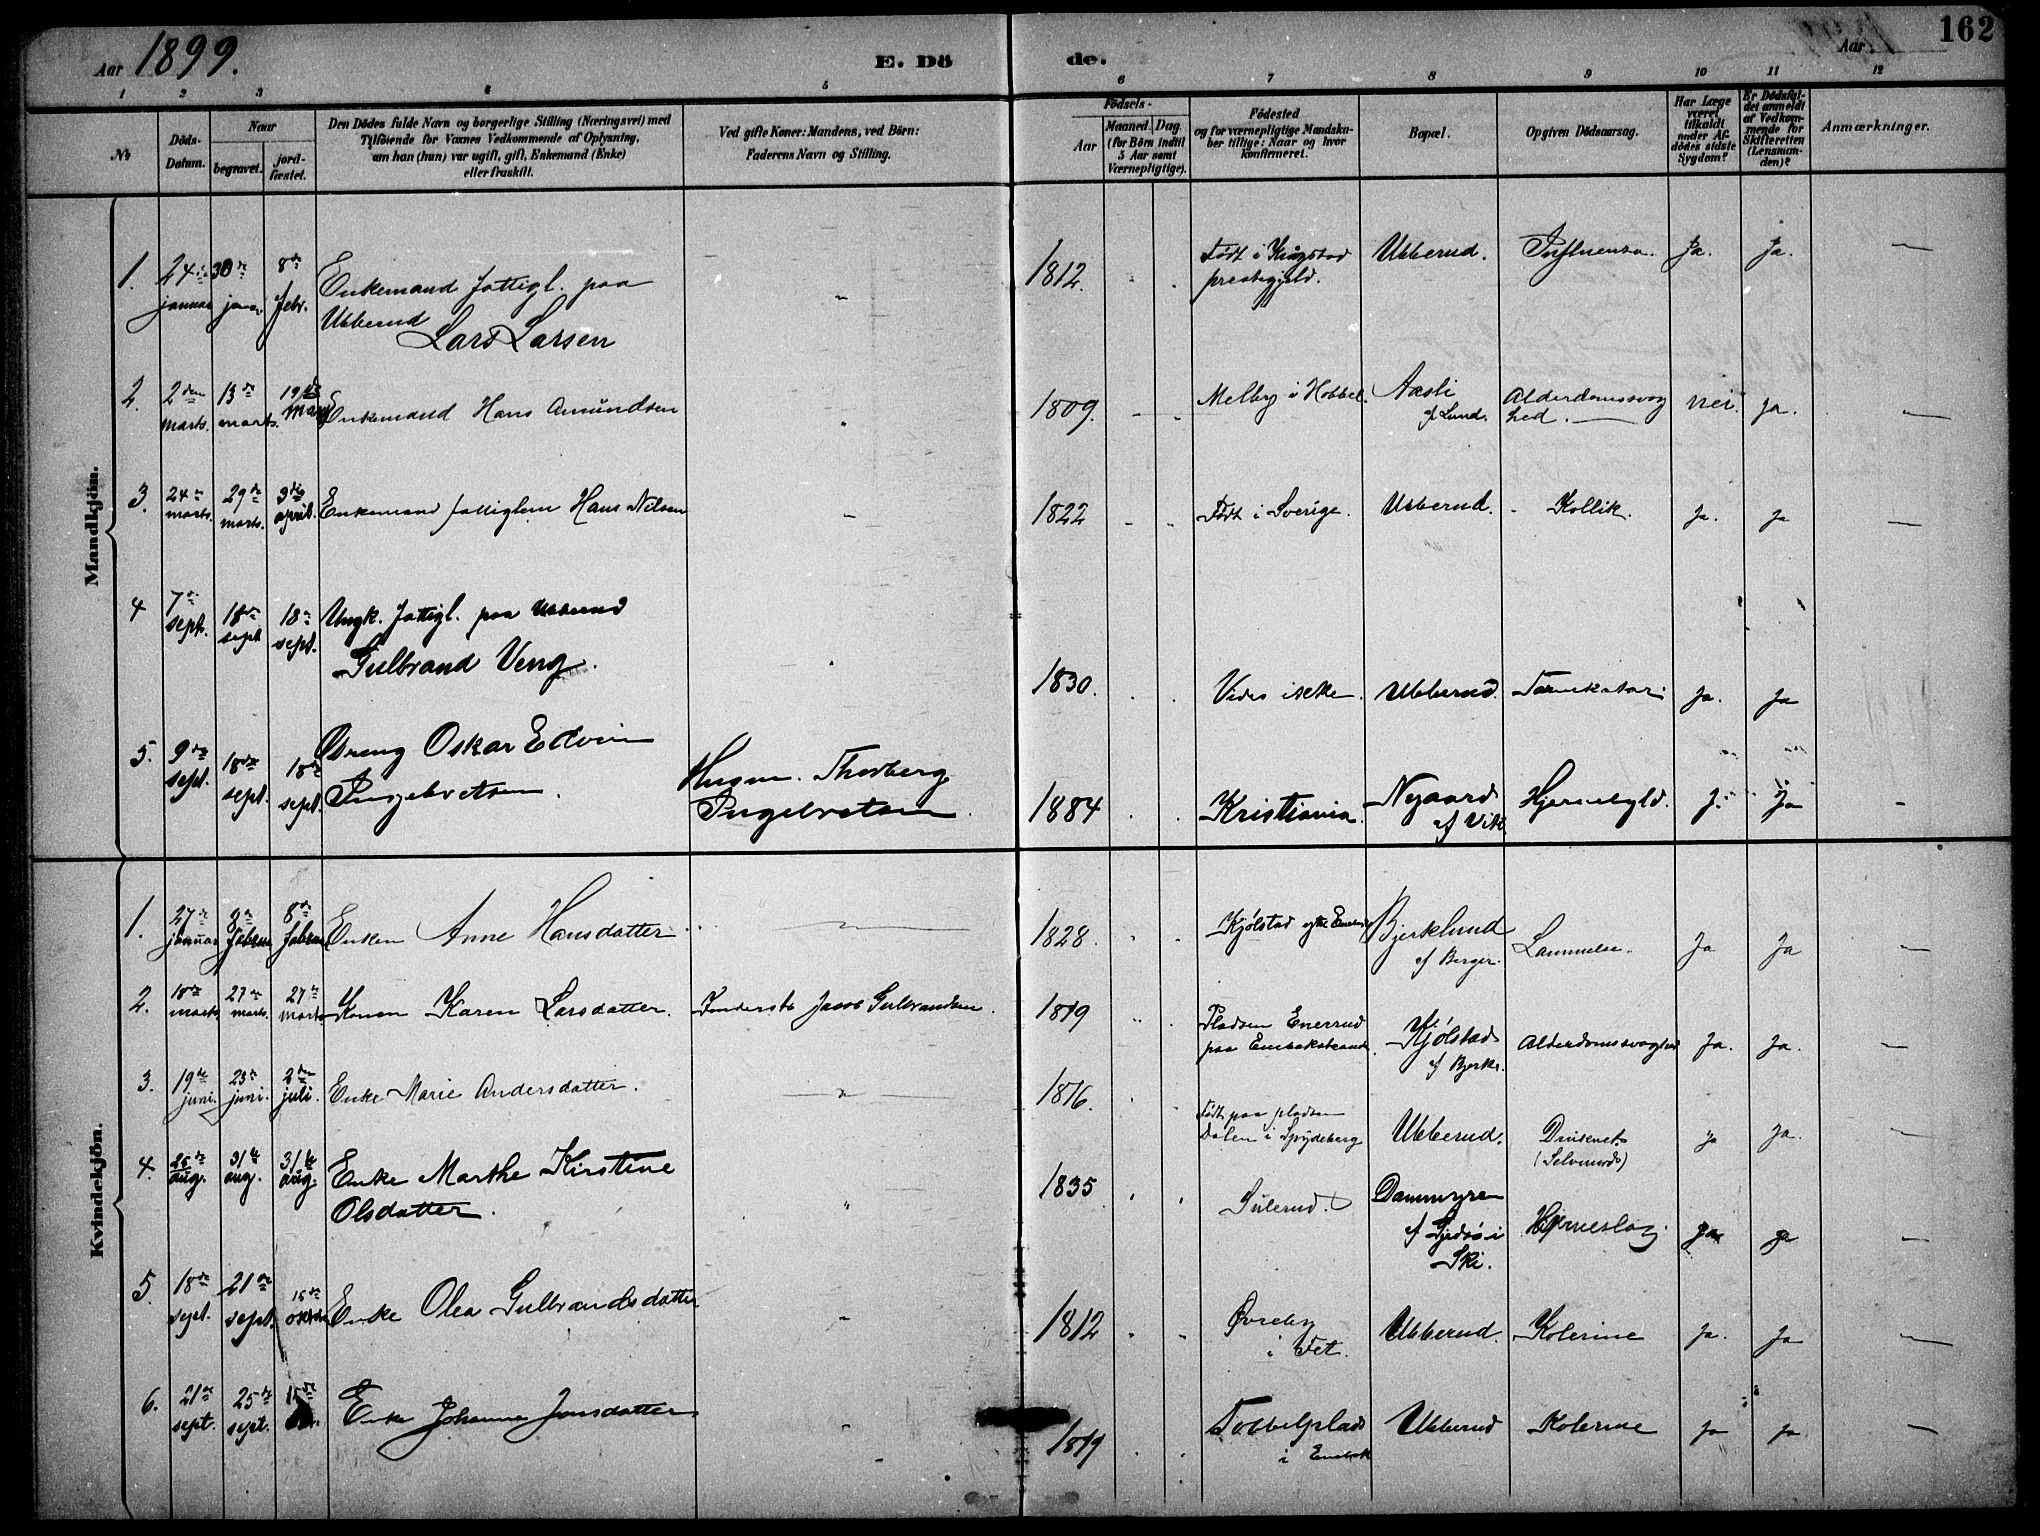 Aar 1899.
E. Dö
de.
Aar
162
1 2 3 4 5 6 7 8 9 10 11 12
No
Döds-
Datum.
Naar
begravet.
jord-
fæstet.
Den Dödes fulde Navn og borgerlige Stilling (Næringsvei) med
Tilföiende for Voxnes Vedkommende af Oplysning,
om han (hun) var ugift, gift, Enkemand (Enke)
eller fraskilt.
Ved gifte Koner: Mandens, ved Börn:
Faderens Navn og Stilling.
Födsels-
Aar
Maaned. Dag.
(for Börn indtil
5 Aar samt
Værnepligtige).
Födested
og for værnepligtige Mandska-
ber tillige: Naar og hvor
konfirmeret.
Bopæl.
Opgiven Dödsaarsag.
Har Læge
været
tilkaldt
under Af-
dödes sidste
Sygdom?
Er Dödsfal-
det anmeldt
af Vedkom-
mende for
Skifteretten
(Lensman-
den)?
Anmærkninger.
Mandkjön.
1. 24de januar 30de januar 8de febr.
Enkemand fattigl. paa
Ubberud
Lars Larsen
1812. Født i
præstegjeld. Ubberud. Influensa. Ja. Ja.
2. 2den marts. 13de marts. 19de marts
Enkemand Hans Amundsen
1809. Melby i Hobbel. Aasli
af Lund. Alderdomssvag
hed. nei. Ja.
3. 24de marts. 29de marts. 3die april.
Enkemand fattiglem Hans Nilsen
1822 Født i Sverige. Ubberud. Kollik. Ja. Ja
4 7de sept. 18de sept 18de sept.
Ungk. fattigl. paa Ubberud
Gulbrand Veng.
1830. Vides ikke. Ubberud. Tarmkatar. Ja. Ja
5. 9de sept. 18de sept. 18de sept.
Dreng Oskar Edvin
Ingebretsen.
Husm. Thorberg
Ingebretsen.
1884 Kristiania. Nygaard
af Vik Hjernebyld. J. Ja
Kvindekjön.
1. 27de januar 8de februar 8de februar
Enken Anne Hansdatter
1828. Kjølstad Bjerklund
af Berger. Lammelse. Ja Ja
2. 18de marts. 27de marts. 27de marts
Konen Karen Larsdatter. Inderst Jacob Gulbrandsen.
1819 Pladsen Enerrud
paa Enebakstrand. Kjølstad
af Bjerke. Alderdomssvaghed Ja. Ja.
3. 19de juni. 23de juni. 2den juli.
Enke Marie Andersdatter.
1816. Født paa pladsen
Dalen i Spydeberg Ubberud. Druknet.
(Selvmord) Ja Ja.
4. 26de aug. 31te aug. 31te aug.
Enke Marthe Kirstine
Olsdatter.
1835 Sulerud. Dammyren
af Gjedsø i
Ski. Hjerneslag. Ja Ja
5. 18de sept. 21de sept. 15de oktober
Enke Olea Gulbrandsdatter
1812 Øvreby
i Fet. Ubberud. Kolerine Ja. Ja
6. 21de sept. 25de sept. 15de
Enke Johanne Jensdatter
1819 i Enebak Ubberud Kolerine Ja Ja